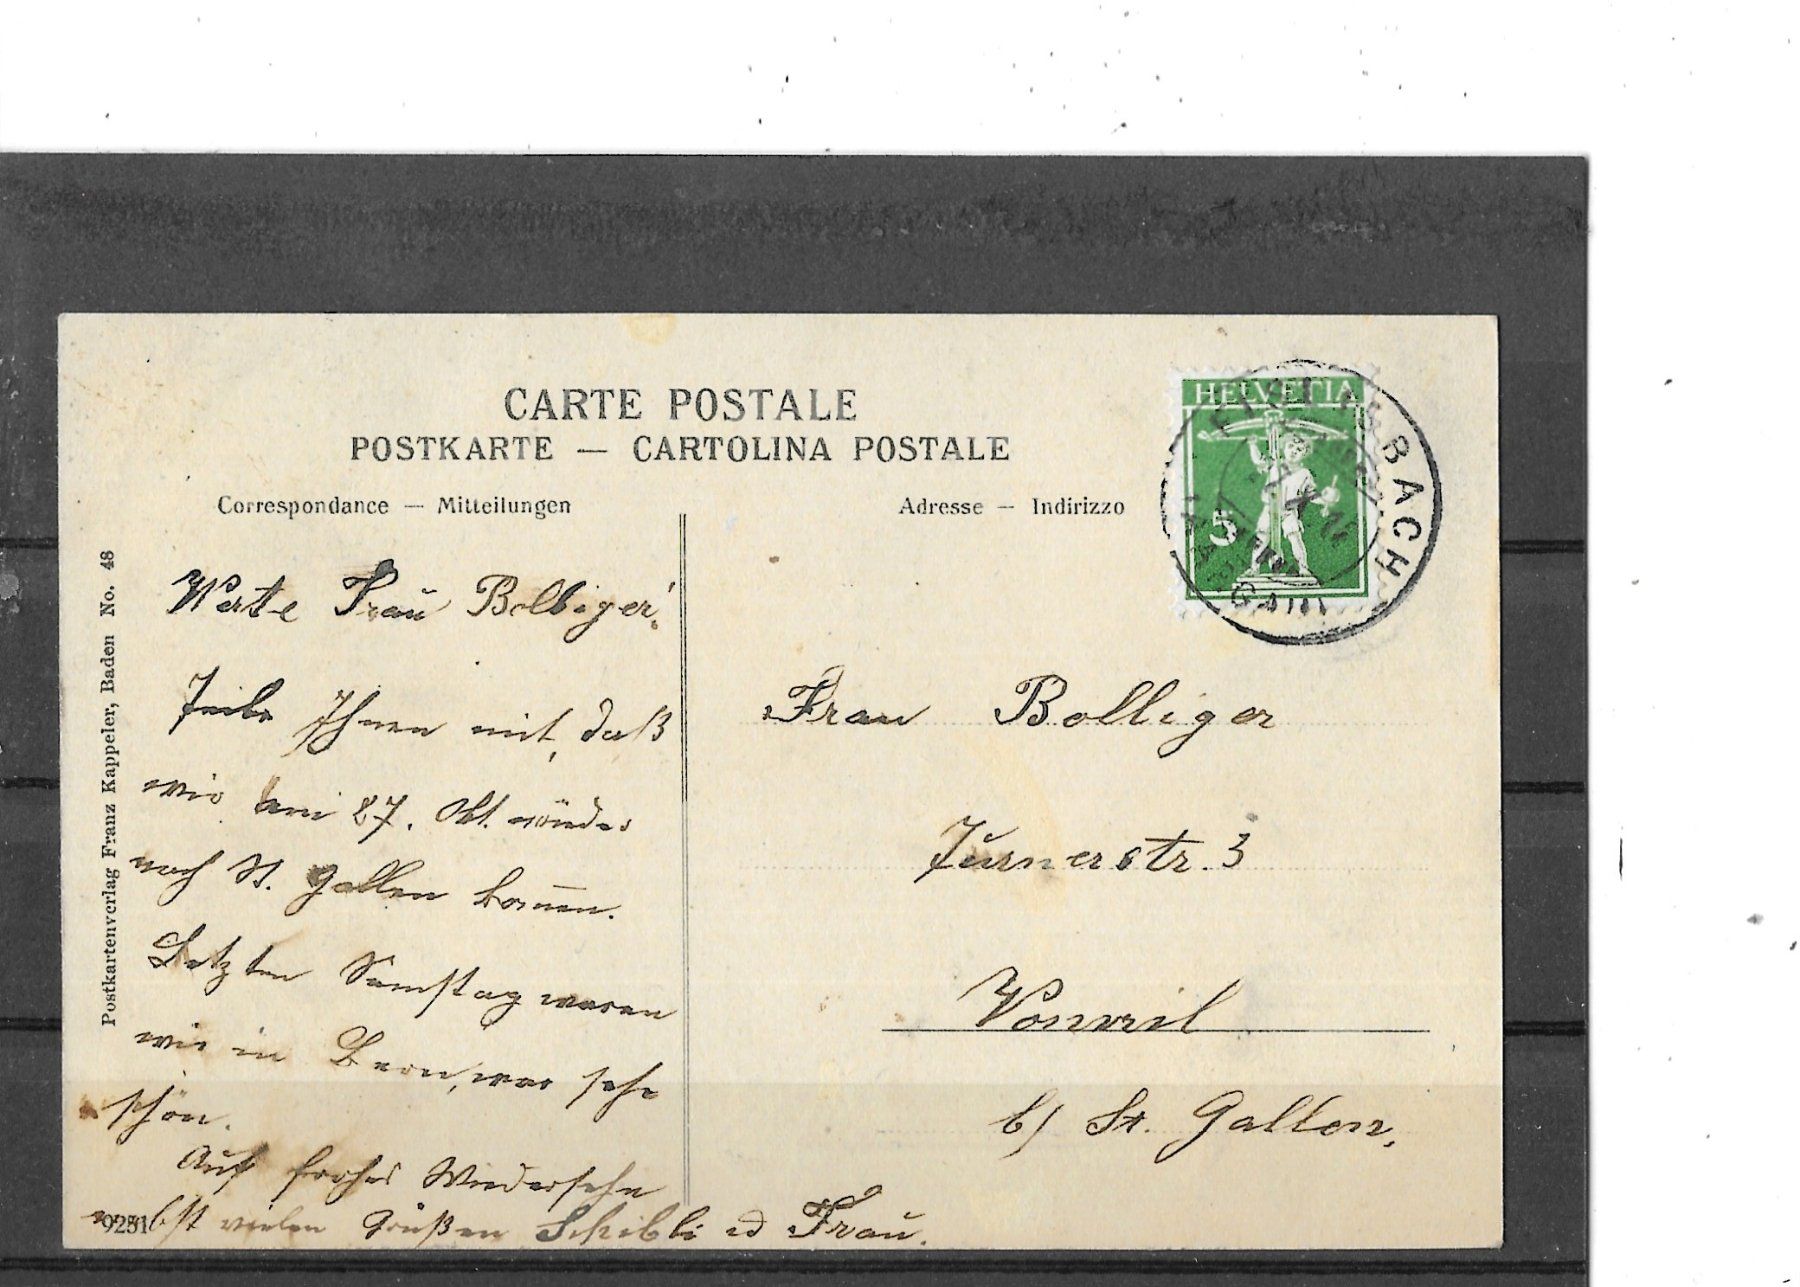 CARTE POSTALE
POSTKARTE — CARTOLINA POSTALE
Correspondance — Mitteilungen
Adresse — Indirizzo
HELVETIA
5
BACH
Postkartenverlag Franz Kappeler, Baden No. 48
Werte Frau Bolliger!
Teile Ihnen mit, daß
wir am 27. Okt. wieder
nach St. Gallen kommen.
Letzten Samstag waren
wir in Bern, war sehr
schön.
Auf frohes Wiedersehn
nebst vielen Grüßen Schibli u Frau.
9251
Frau Bolliger
Turnerstr. 3
Vonwil
b/ St. Gallen,